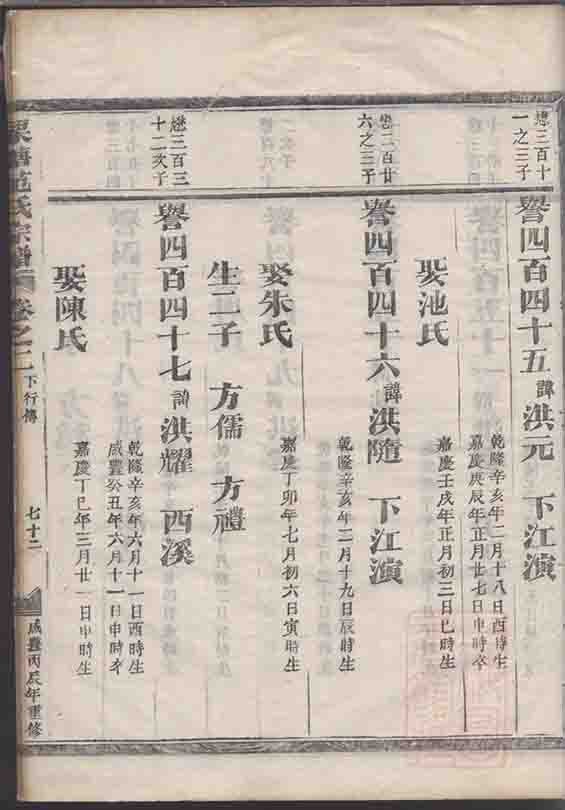 懋三百十
一之三子
譽四百四十五 諱洪元 下江演
乾隆辛亥年二月十八日酉時生
嘉慶庚辰年正月廿七日申時卒
娶池氏
嘉慶壬戌年正月初三日巳時生
懋三百廿
六之三子
譽四百四十六 諱洪隨 下江演
乾隆辛亥年二月十九日辰時生
娶朱氏
嘉慶丁卯年七月初六日寅時生
生二子 方儒 方禮
懋三百三
十二次子
譽四百四十七 諱洪耀 西溪
乾隆辛亥年六月十一日酉時生
咸豐癸丑年六月十一日申時卒
娶陳氏
嘉慶丁巳年三月廿一日申時生
范氏宗譜 卷之二 下行傳 七十二 咸豐丙辰年重修